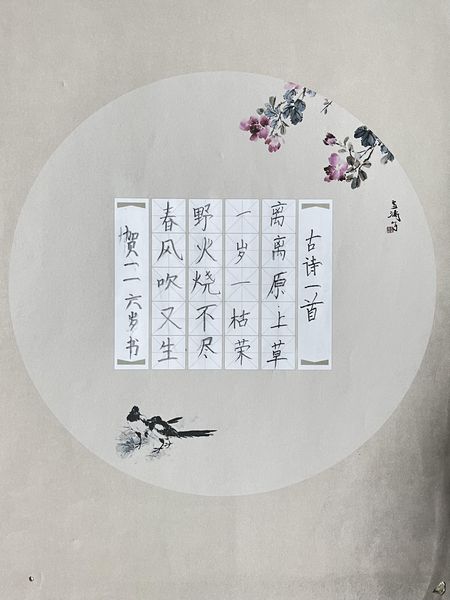 古诗一首
离离原上草
一岁一枯荣
野火烧不尽
春风吹又生
贺一一六岁书